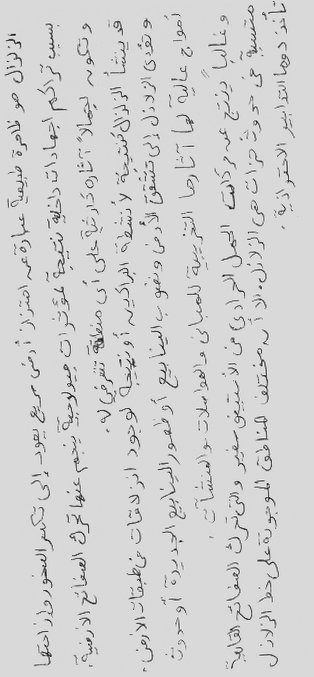 الزلزال هو ظاهرة طبيعية عبارة عن اهتزاز أرضي سريع يعود إلى تكسر الصخور وإزاحتها
بسبب تراكم اجهادات داخلية نتيجة لمؤثرات جيولوجية ينجم عنها تحرك الصفائح الأرضية.
وتكون إجمالاً آثاره كارثية على أي منطقة تتعرض له.
قد ينشأ الزلزال كنتيجة لأنشطة البراكين أو نتيجة لوجود انزلاقات في طبقات الأرض.
وتؤدي الزلازل إلى تشقق الأرض ونضوب الينابيع أو ظهور الينابيع الجديدة أو حدوث
أمواج عالية لها آثارها التخريبية للمباني والمواصلات والمنشآت.
وغالباً ينتج عن حركات الحمل الحراري في الأستينوسفير والتي تحرك الصفائح القارية
متسببة في حدوث هزات هي الزلازل. الا أنه مختلف المناطق الموجودة على خط الزلازل
تأخذ دوما التدابير الاحترازية.